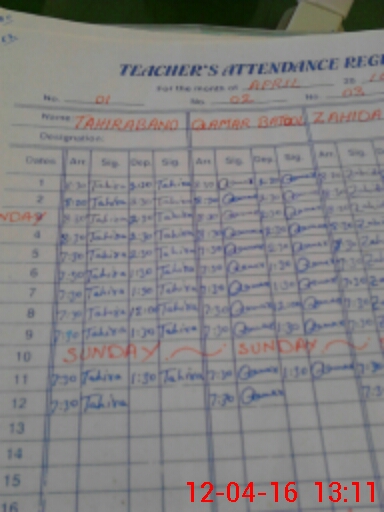 TEACHER'S ATTENDANCE REG
For the month of APRIL 20
No. 01 No. 02 No. 03
Name TAHIRA BANO QAMAR BATOOL ZAHIDA
Designation:
Dates Arr. Sig. Dep. Sig. Arr. Sig. Dep. Sig. Arr. Sig.
1 8:30 Tahira 2:30 Tahira 8:30 Qamar 2:30 Qamar
2 8:30 Tahira 2:30 Tahira 8:30 Qamar 2:30 Qamar
NDAY 8:30 Tahira 2:30 Tahira 8:30 Qamar 2:30 Qamar
4 8:30 Tahira 2:30 Tahira 8:30 Qamar 2:30 Qamar
5 7:30 Tahira 2:30 Tahira 7:30 Qamar 2:30 Qamar 7:30
6 7:30 Tahira 1:30 Tahira 7:30 Qamar 1:30 Qamar 7:30
7 7:30 Tahira 1:30 Tahira 7:30 Qamar 1:30 Qamar 7:30
8 7:30 Tahira 12:00 Tahira 7:30 Qamar 12:00 Qamar 7:30
9 7:30 Tahira 1:30 Tahira 7:30 Qamar 1:30 Qamar 7:30
10 SUNDAY SUNDAY
11 7:30 Tahira 1:30 Tahira 7:30 Qamar 1:30 Qamar 7:30
12 7:30 Tahira 7:30 Qamar 7:30
13
14
15
16
12-04-16 13:11